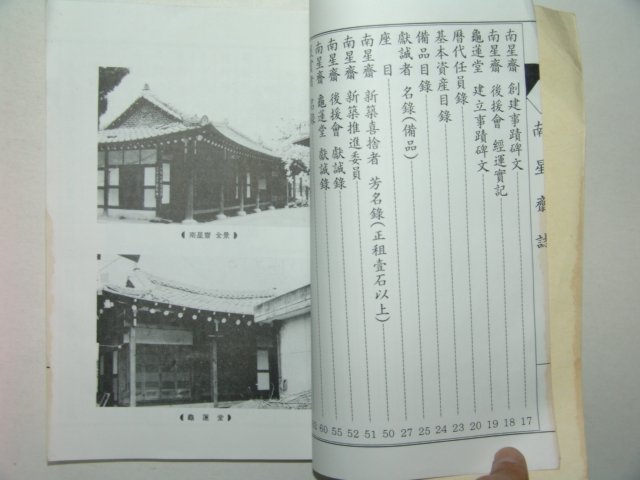 南星齋誌
南星齋 創建事蹟碑文 17
南星齋 後援會 經運實記 18
龜蓮堂 建立事蹟碑文 19
歷代任員錄 20
基本資産目錄 23
備品目錄 24
獻誠者 名錄(備品) 25
座目 27
南星齋 新築喜捨者 芳名錄(正租壹石以上) 50
南星齋 新築推進委員 51
南星齋 後援會 獻誠錄 52
南星齋 龜蓮堂 獻誠錄 55
名錄 60
《南星齋 全景》
《龜蓮堂》